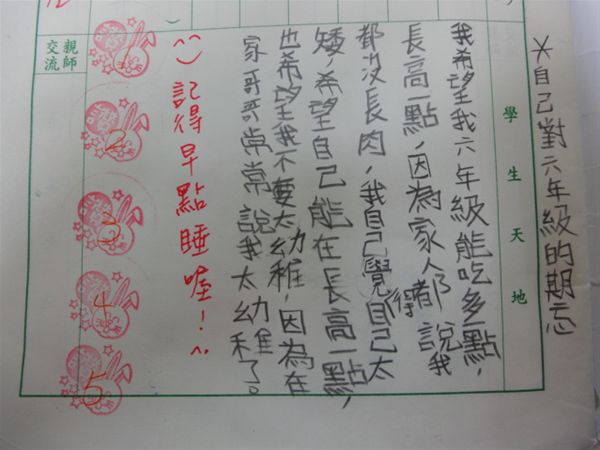 ＊自己對六年級的期忘
學生天地
我希望我六年級能吃多一點，
長高一點，因為家人都說我
都沒長肉，我自己覺得自己太
矮，希望自己能在長高一點，
也希望我不要太幼稚，因為在
家哥哥常常說我太幼稚了。
記得早點睡喔！
親師
交流
1
2
3
4
5